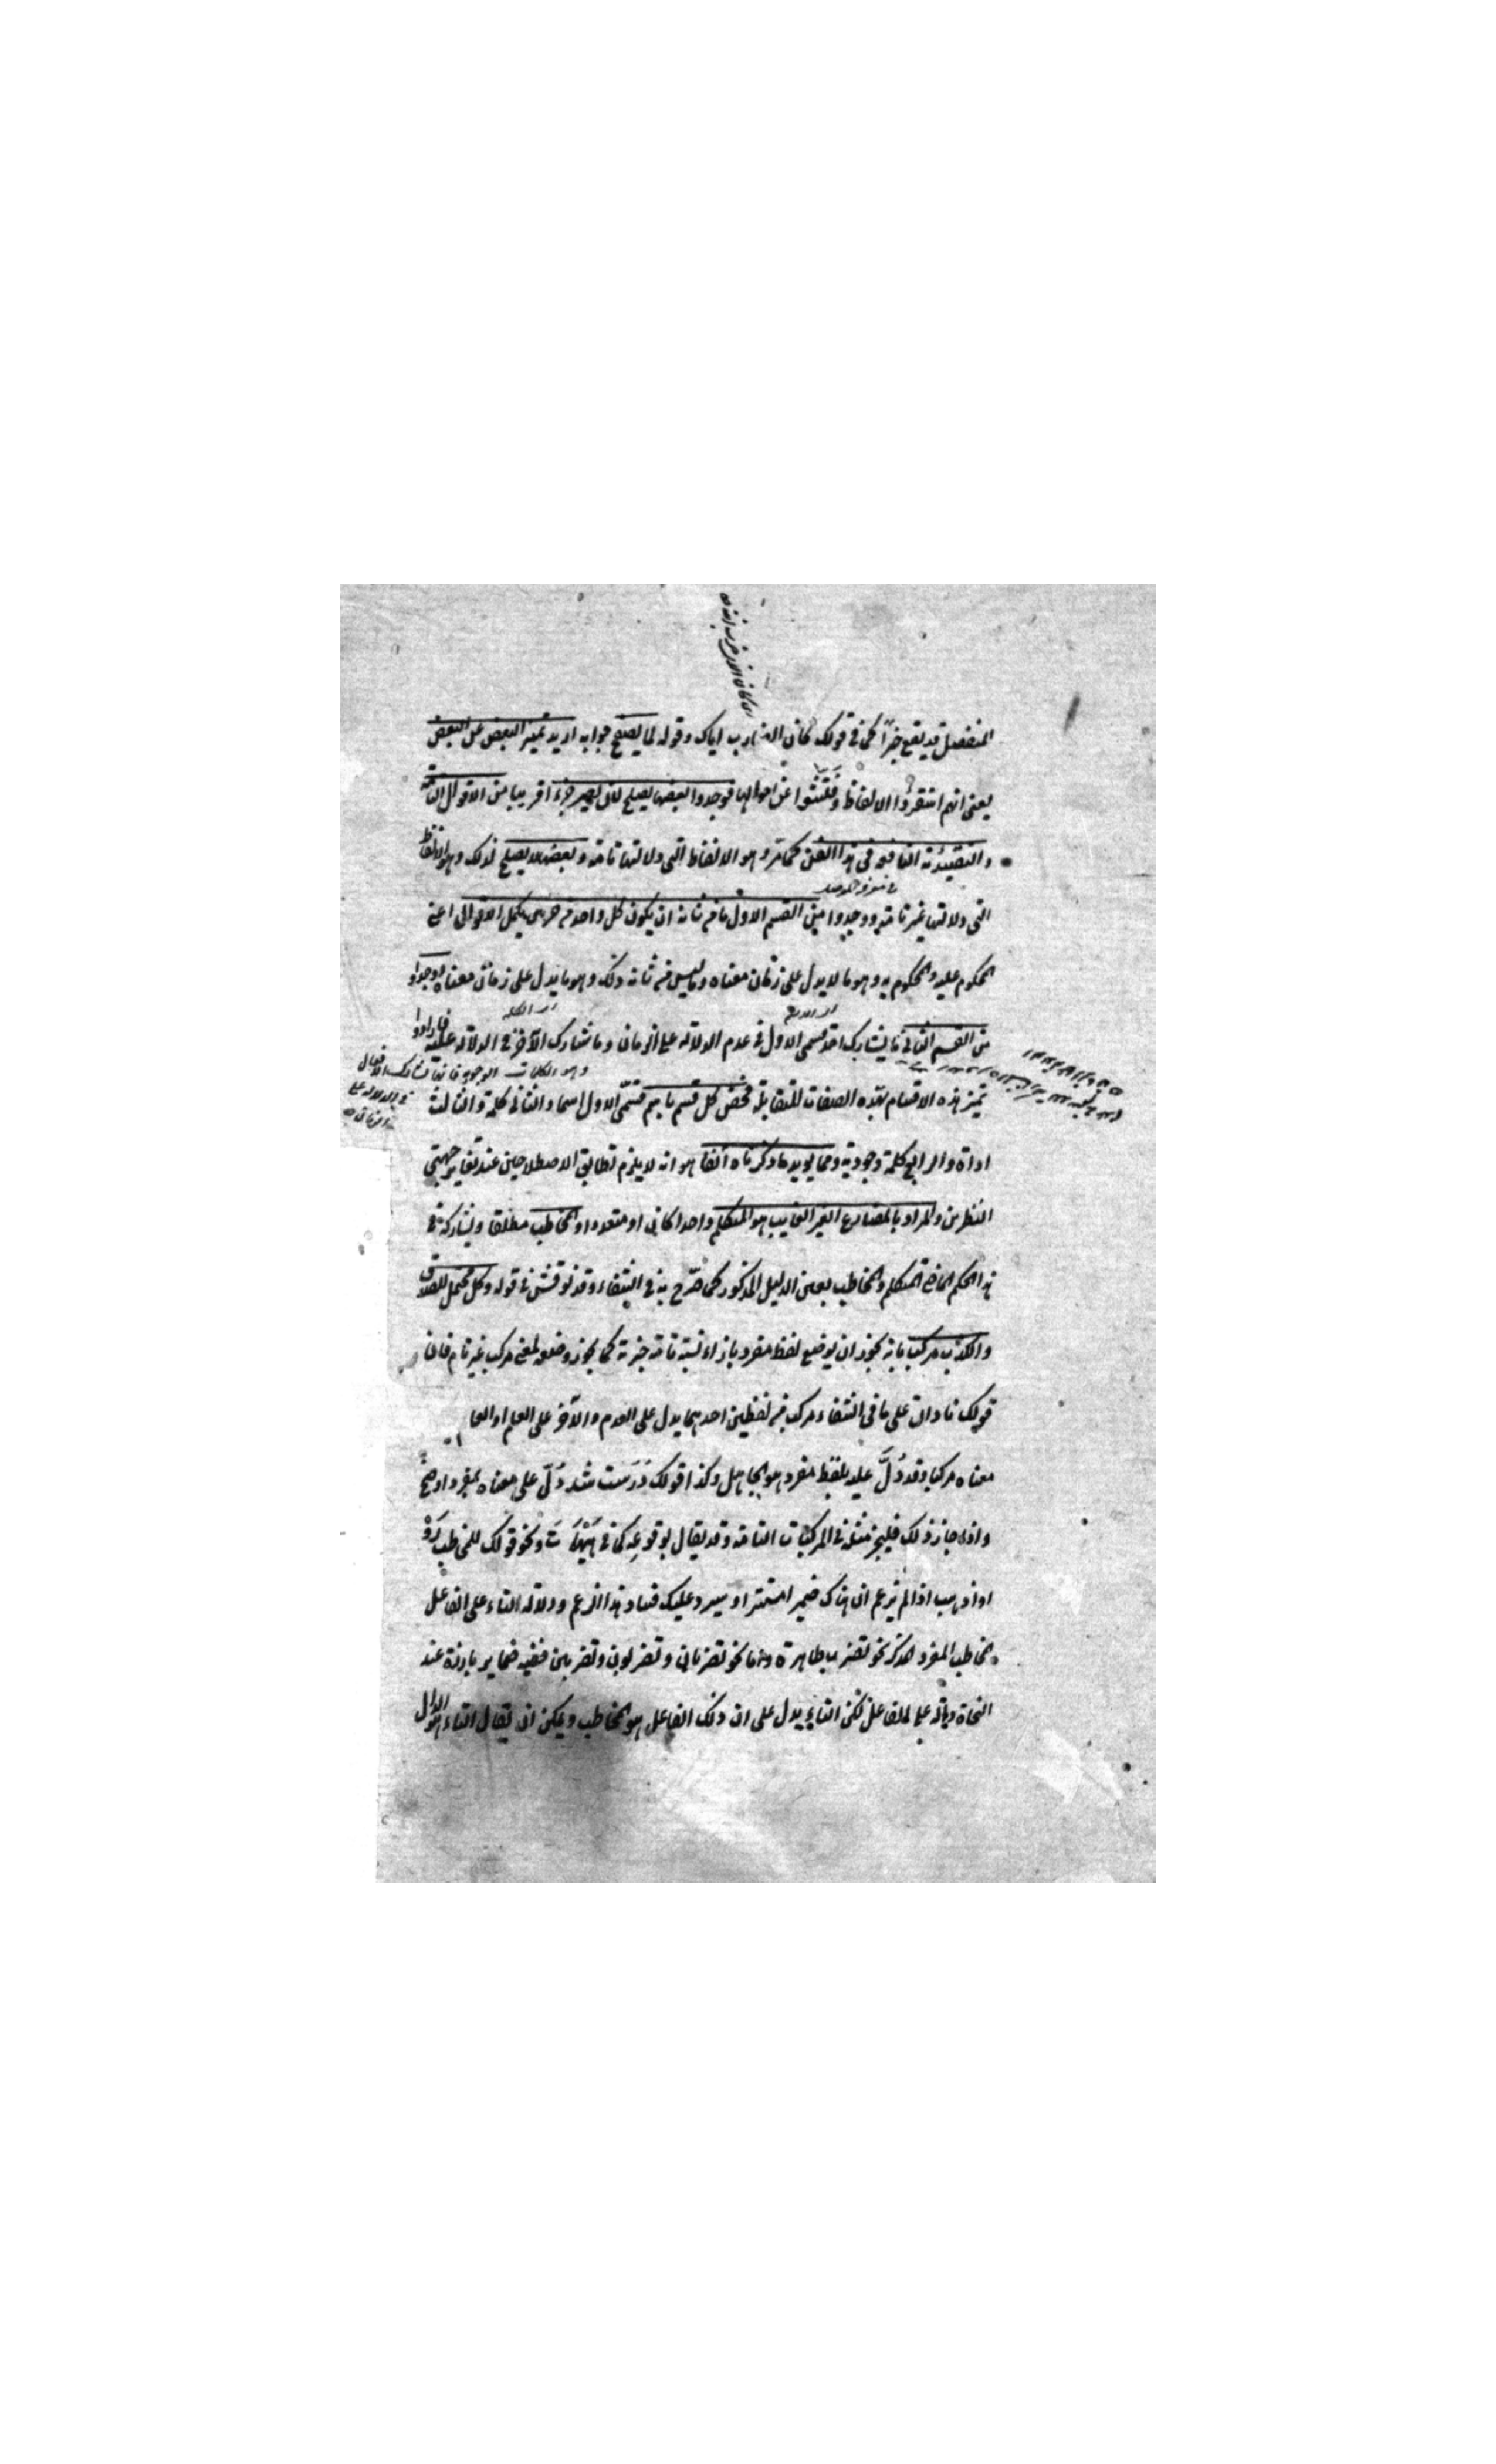 المنفصل قد يقع خبراً كما فى قولك كان الضارب اياك وقوله لما يصلح جوابه اريد تميز البعض عن البعض
يعنى انهم استقرؤا الالفاظ وفتشوا عن احوالها فوجدوا بعضها يصلح لان يصير جزءا قريبا من الاقوال التامة
والتقييدية النافعة فى هذا الفن كما مر وهو الالفاظ التى دلالتها تامة وبعضها لا يصلح لذلك وهو الالفاظ
التى دلالتها غير تامة ووجدوا بين القسم الاول ما من شانه ان يكون كل واحد من جزئى الاقوال اعنى
المحكوم عليه والمحكوم به وهو ما لا يدل على زمان معناه وما ليس من شانه ذلك وهو ما يدل على زمان معناه ووجدوا
من القسم الثانى ما يشارك احد قسمى الاول فى عدم الدلالة على الزمان وما شارك الآخر فى الدلالة عليه فارادوا
تميز هذه الاقسام بهذه الصفات المتقابلة فخص كل قسم باسم فسمى الاول اسما والثانى كلمة والثالث
اداة والرابع كلمة وجودية ومما يويد ما ذكرناه آنفا هو انه لا يلزم تطابق الاصطلاحين عند تغاير جهتى
النظرين والمراد بالمضارع الغير الغايب هو المتكلم واحدا كان او متعددا او المخاطب مطلقا ويشاركه فى
هذا الحكم الماضى المتكلم والمخاطب بعين الدليل المذكور كما صرح به فى الشفاء وقد نوقش فى قوله وكل محتمل للصدق
والكذب مركب بانه يجوز ان يوضع لفظ مفرد بازاء نسبة تامة خبرية كما يجوز وضعه لمعنى مركب غير تام فان
قولك نادان على ما فى الشفاء مركب من لفظين احدهما يدل على العدم والآخر على العلم او العا
معناه مركبا وقد دُلَّ عليه بلفظ مفرد هو الجاهل وكذا قولك دَرَست شد دُلّ على معناه بمفرد اوضح
واذا جاز ذلك فليجز مثله فى المركبات التامة وقد يقال بوقوعه كما فى هَيْهَاتَ ونحو قولك للمخاطب
او اذهب اذا لم يزعم ان هناك ضميرا مستترا وسيرد عليك فساد هذا الزعم ودلالة التاء على الفاعل
المخاطب المفرد المذكر نحو تضرب ظاهرة واما نحو تضربان وتضربون وتضربين ففيه ضماير بارزة عند
النحاة دالة على الفاعل لكن التاء يدل على ان ذلك الفاعل هو المخاطب ويمكن ان يقال التاء هو الدال